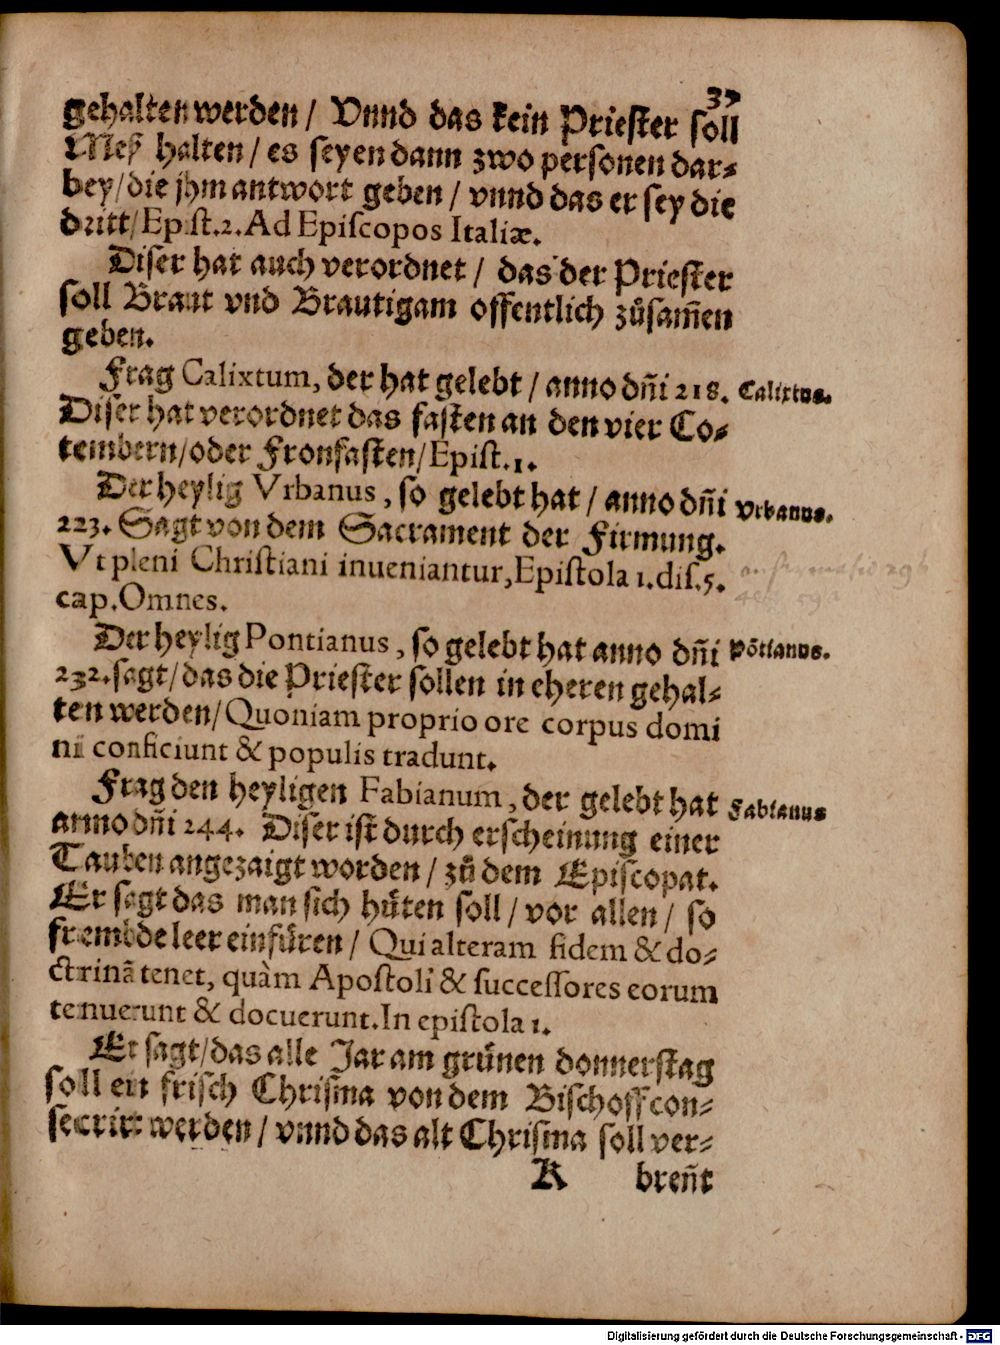 37
gehalten werden / Vnnd das kein Priester soll
Meß halten / es seyen dann zwo personen dar⸗
bey / die jhm antwort geben / vnnd das er sey die
dritt / Epist.2. Ad Episcopos Italiæ.
Diser hat auch verordnet / das der Priester
soll Braut vnd Brautigam offentlich zůsam̃en
geben.
Frag Calixtum, der hat gelebt / anno dñi 218. Calixtus.
Diser hat verordnet das fasten an den vier Co⸗
tembern / oder Fronfasten / Epist.1.
Der heylig Vrbanus, so gelebt hat / anno dñi Vrbanus.
223. Sagt von dem Sacrament der Firmung.
Vt pleni Christiani inueniantur, Epistola 1. dis.5.
cap. Omnes.
Der heylig Pontianus, so gelebt hat anno dñi Põtianus.
232. sagt / das die Priester sollen in eheren gehal⸗
ten werden / Quoniam proprio ore corpus domi
ni conficiunt & populis tradunt.
Frag den heyligen Fabianum, der gelebt hat Fabianus
anno dñi 244. Diser ist durch erscheinung einer
Tauben angezaigt worden / zů dem Episcopat.
Er sagt das man sich hůten soll / vor allen / so
frembde leer einfůren / Qui alteram fidem & do⸗
ctrinã tenet, quàm Apostoli & successores eorum
tenuerunt & docuerunt. In epistola 1.
Er sagt / das alle Jar am grůnen donnerstag
soll ein frisch Chrisma von dem Bischoff con⸗
secrirt werden / vnnd das alt Chrisma soll ver⸗
K breñt
Digitalisierung gefördert durch die Deutsche Forschungsgemeinschaft - DFG